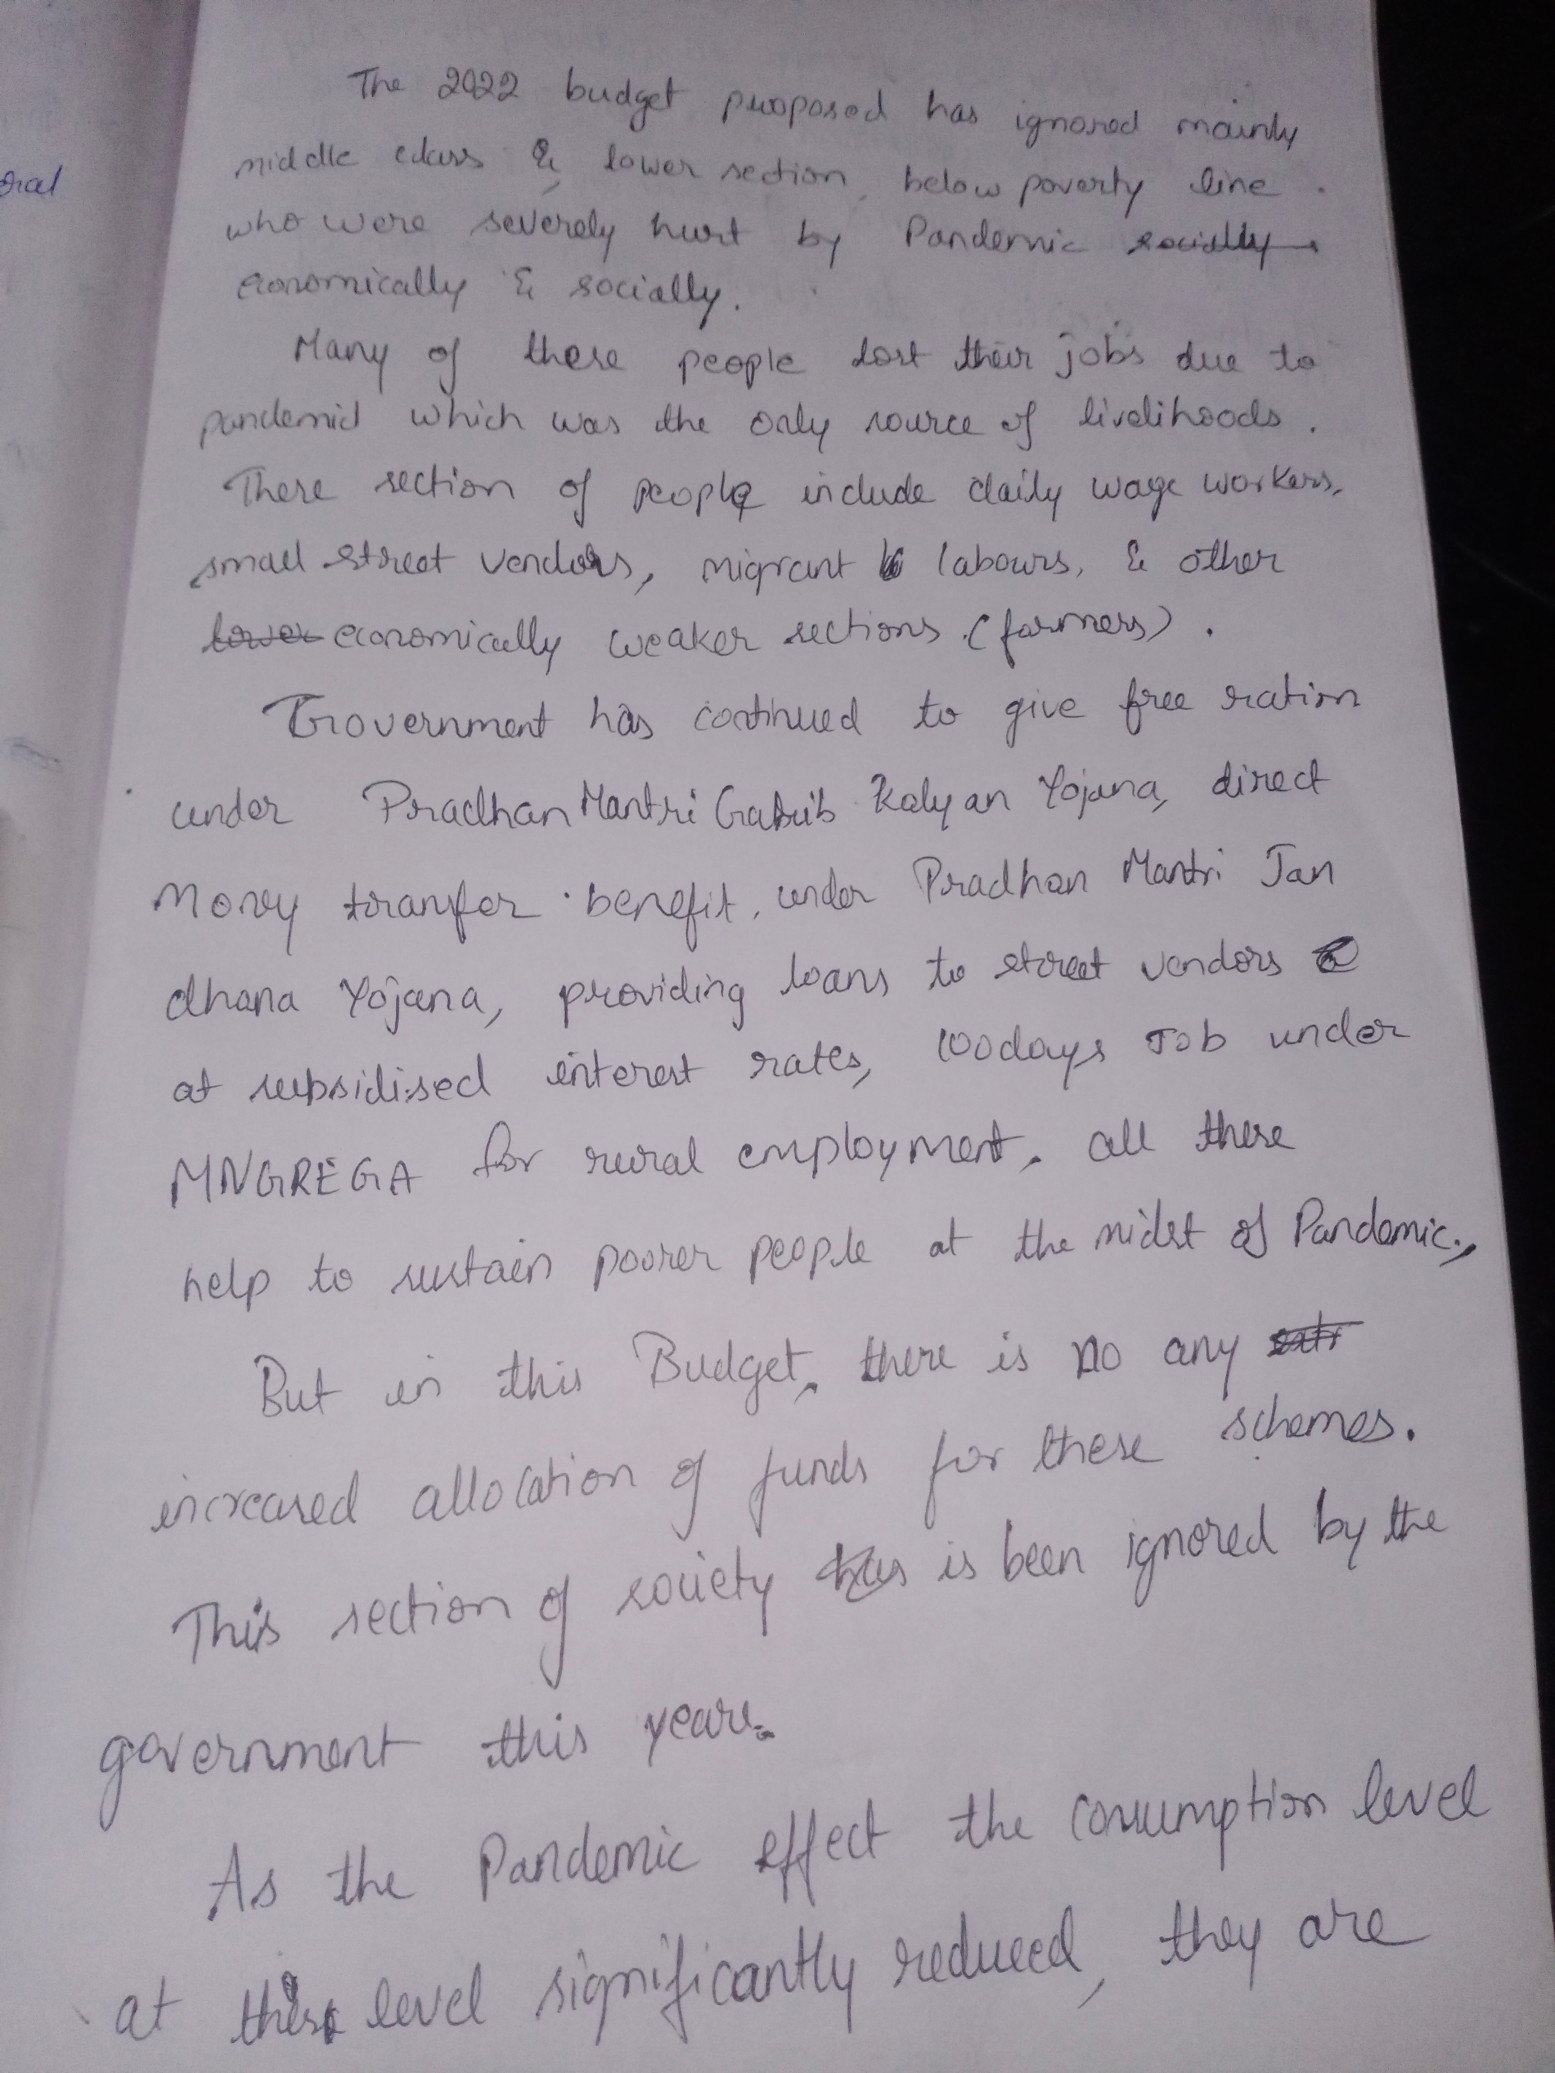 oral
The 2022 budget proposed has ignored mainly
middle class & lower section, below poverty line
who were severely hurt by Pandemic socially
economically & socially.
Many of these people lost their jobs due to
pandemid which was the only source of livelihoods.
These section of people include daily wage workers,
small street vendors, migrant labours, & other
lower economically weaker sections (farmers).
Government has continued to give free ration
under Pradhan Mantri Garib Kalyan Yojana, direct
Money transfer benefit, under Pradhan Mantri Jan
dhana Yojana, providing loans to street vendors
at subsidised interest rates, 100days Job under
MNGREGA for rural employment, all these
help to sustain poorer people at the midst of Pandemic.,
But in this Budget, there is no any extr
increased allocation of funds for these schemes.
This section of society has is been ignored by the
government this year.
As the Pandemic effect the consumption level
at this level significantly reduced, they are